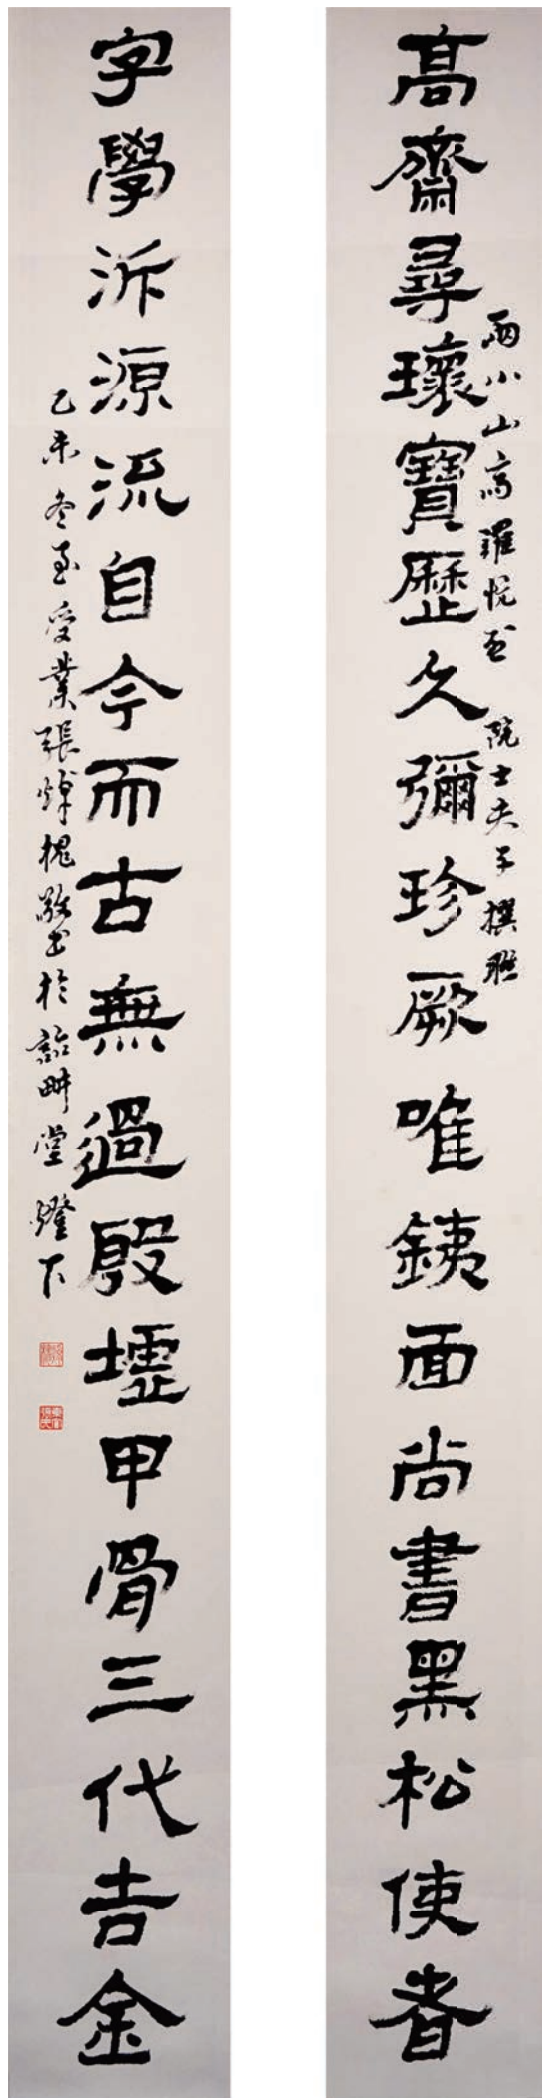 高齋尋瓌寶歷久彌珍厥唯銕面尚書黑松使者
兩小山高羅悅 院士夫子撰聯
字學泝源流自今而古無過殷墟甲骨三代吉金
乙未冬至受業張煒槐敬書於詒畊堂燈下